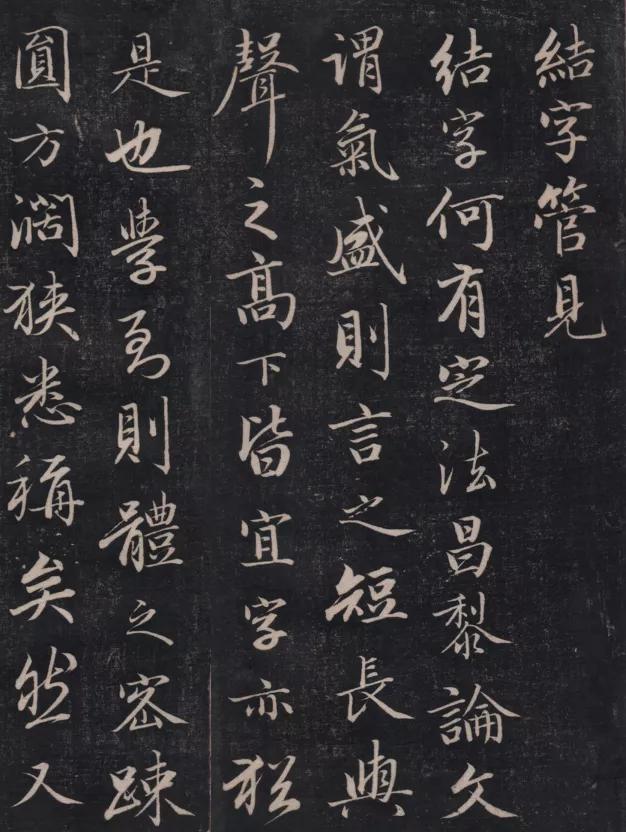 結字管見
結字何有定法昌黎論文
謂氣盛則言之短長與
聲之髙下皆宜字亦猶
是也學至則體之密踈
圓方濶狹悉稱矣然又